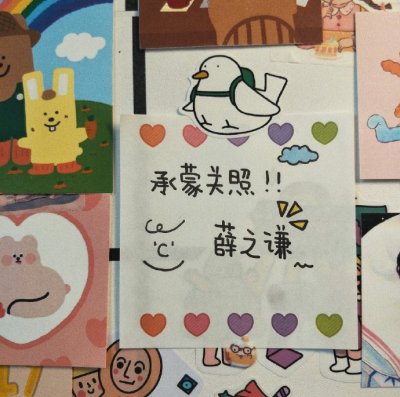 承蒙关照!!
薛之谦~